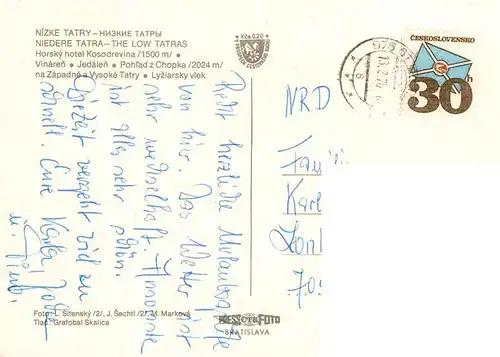 NÍZKE TATRY — НИЗКИЕ ТАТРЫ
NIEDERE TATRA — THE LOW TATRAS
Horský hotel Kosodrevina /1500 m/ •
Vináreň • Jedáleň • Pohľad z Chopka /2024 m/
na Západné a Vysoké Tatry • Lyžiarsky vlek
Recht herzliche Urlaubsgrüße
von hier. Das Wetter ist
sehr wechselhaft. Ansonsten
ist alles sehr schön.
Die Zeit vergeht viel zu
schnell. Eure
u.
Foto: L. Sitenský /2/, J. Šechtl /2/, M. Marková
Tlač: Grafobal Skalica
Kčs 0,20
PRESSFOTO
BRATISLAVA
ČESKOSLOVENSKO
30 h
NRD
Fami
Karl